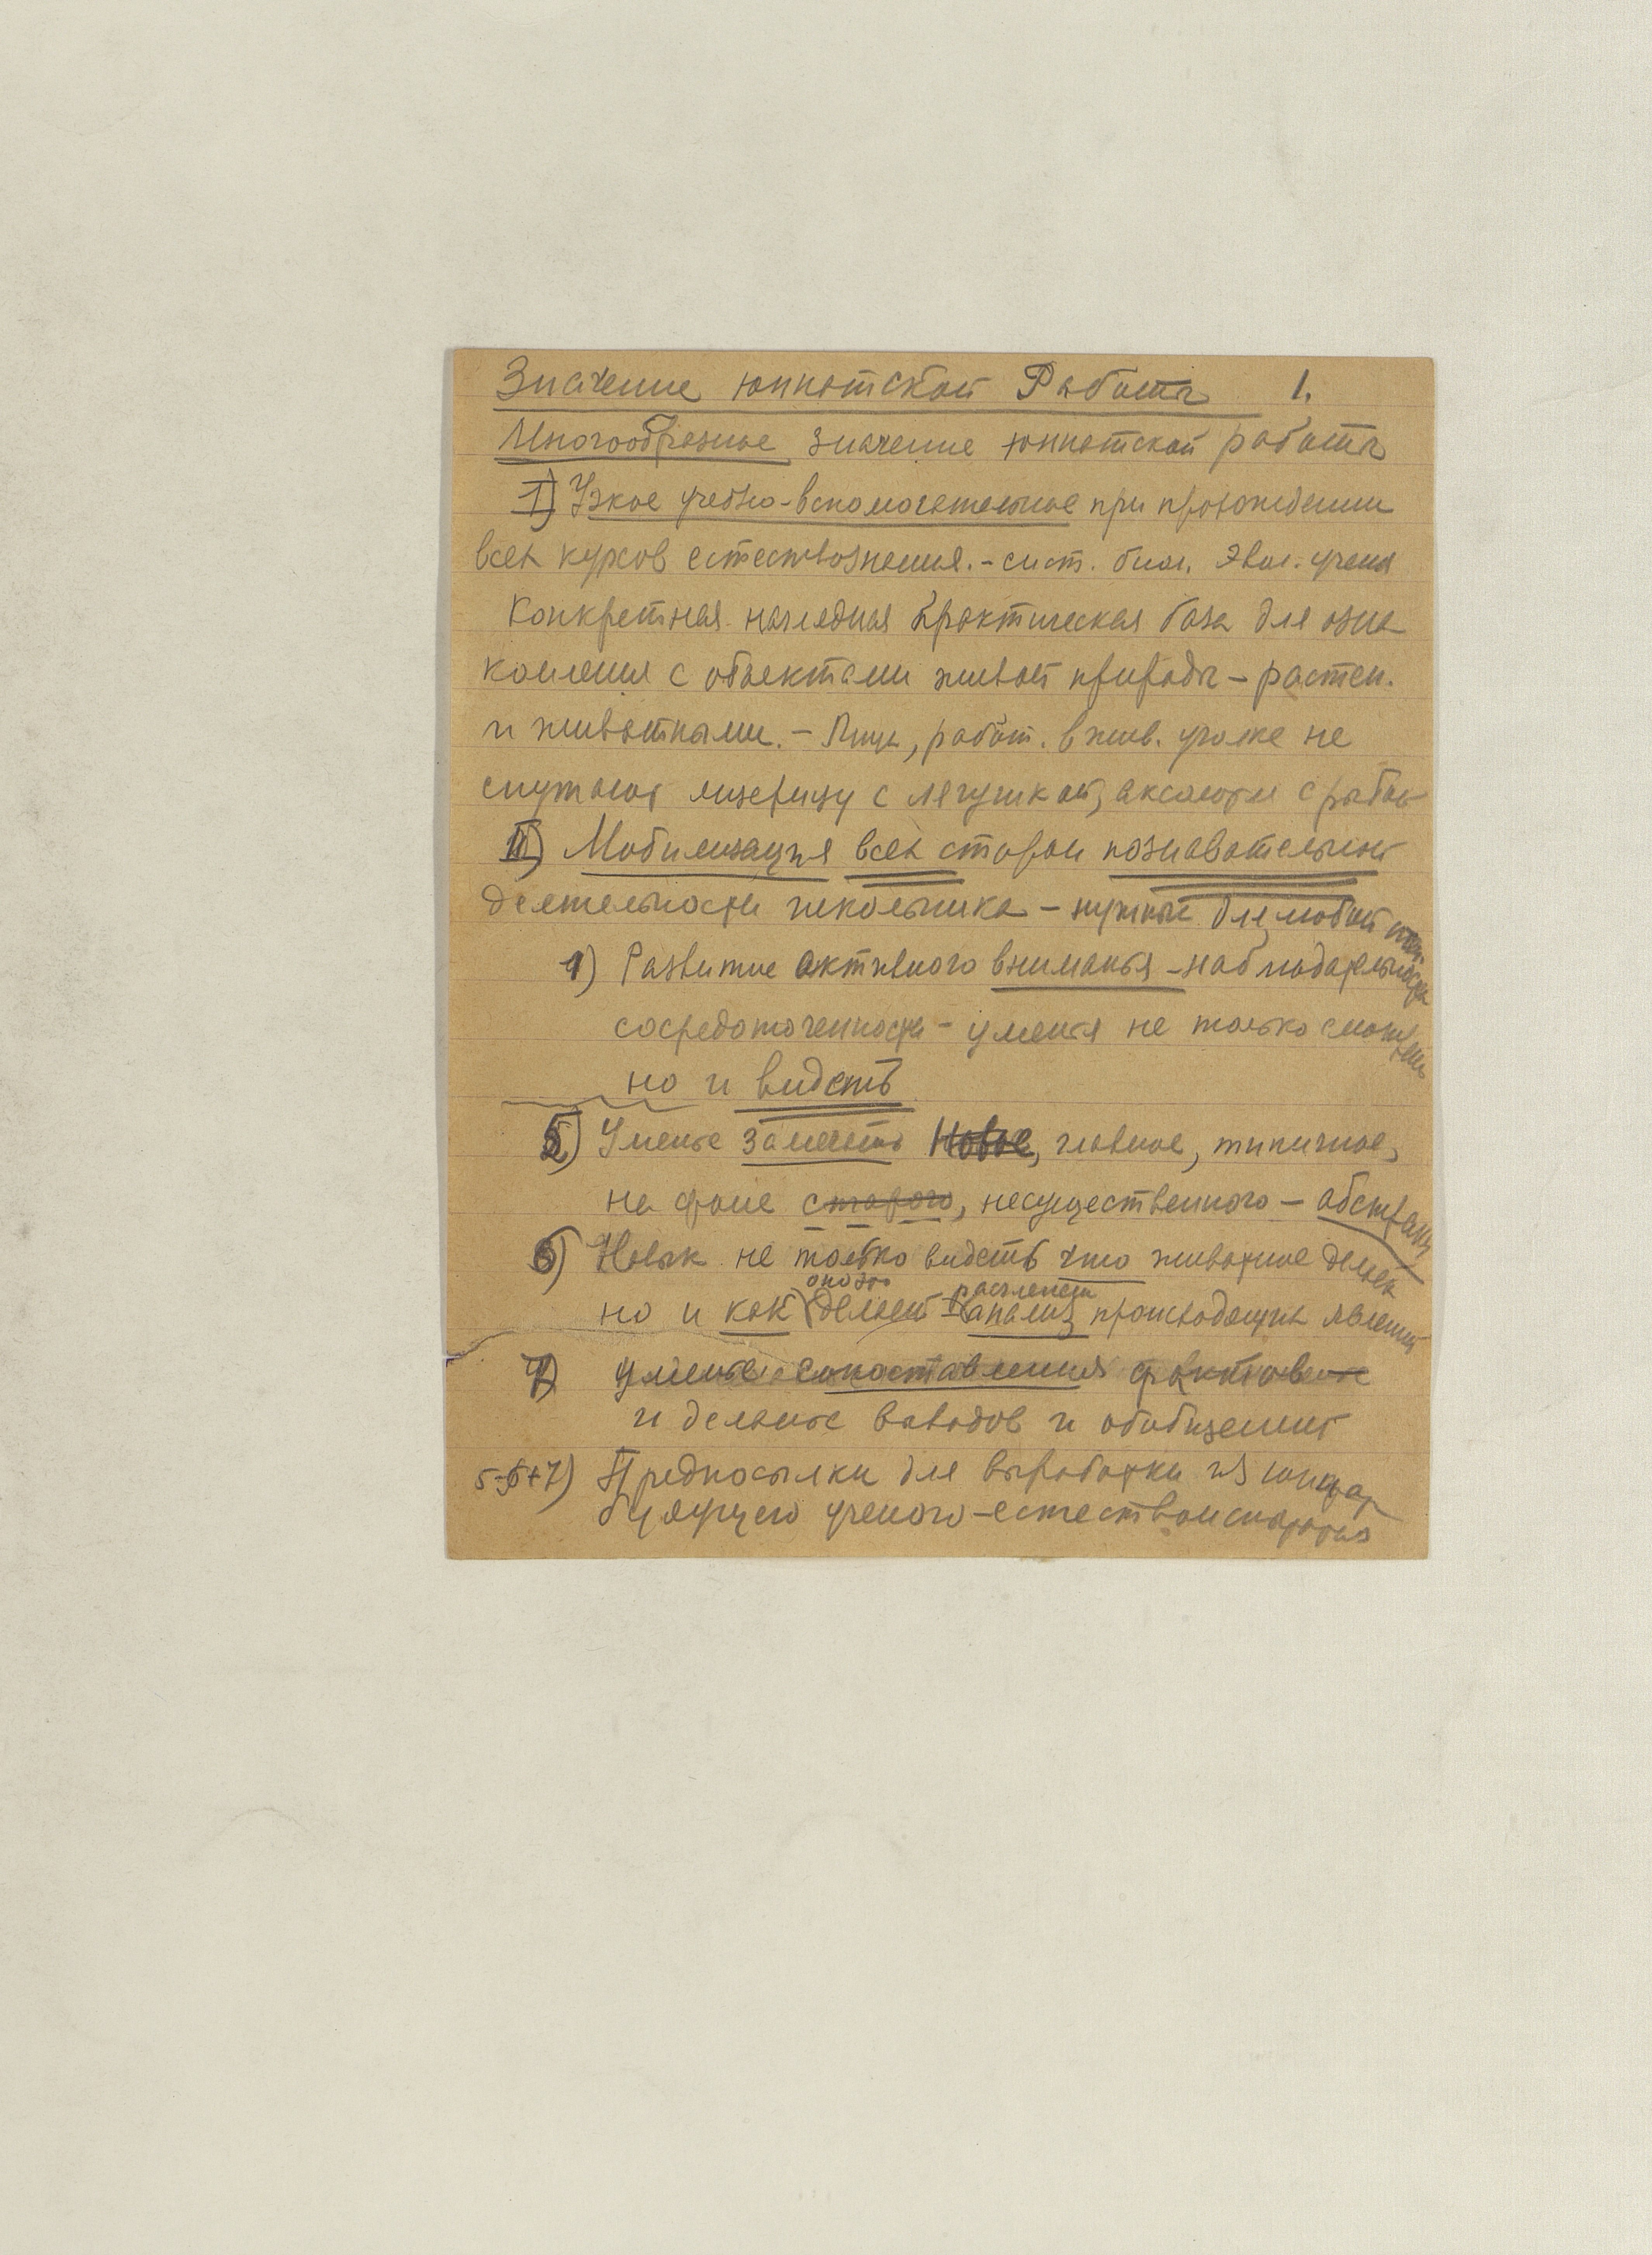 Значение юннатской Работы 1.
Многообразное значение юннатской работы
I) Узкое учебно-вспомогательное при прохождении
всех курсов естествознания. - сист. биол. эвол. учения
Конкретная наглядная практическая база для озна
комления с объектами живой природы - растен.
и животными. - Лица, работ. в жив. уголке не
спутают ящерицу с лягушкой, аксолотля с рыбой
II) Мобилизация всех сторон познавательной
деятельности школьника - нужные для любой
1) Развитие активного вниманья - наблюдательности
сосредоточенности - уменья не только смотреть
но и видеть
5) Уменье замечать Новое, главное, типичное,
на фоне старого, несущественного - абстракц
6) Навык не только видеть что животное делает
но и как оно это делает - расчленен анализ происходящих явлений
7) уменье сопоставления фактов
и деланье выводов и обобщений
5+6+7) Предпосылки для выработки из юнната
будущего ученого-естествоиспытателя